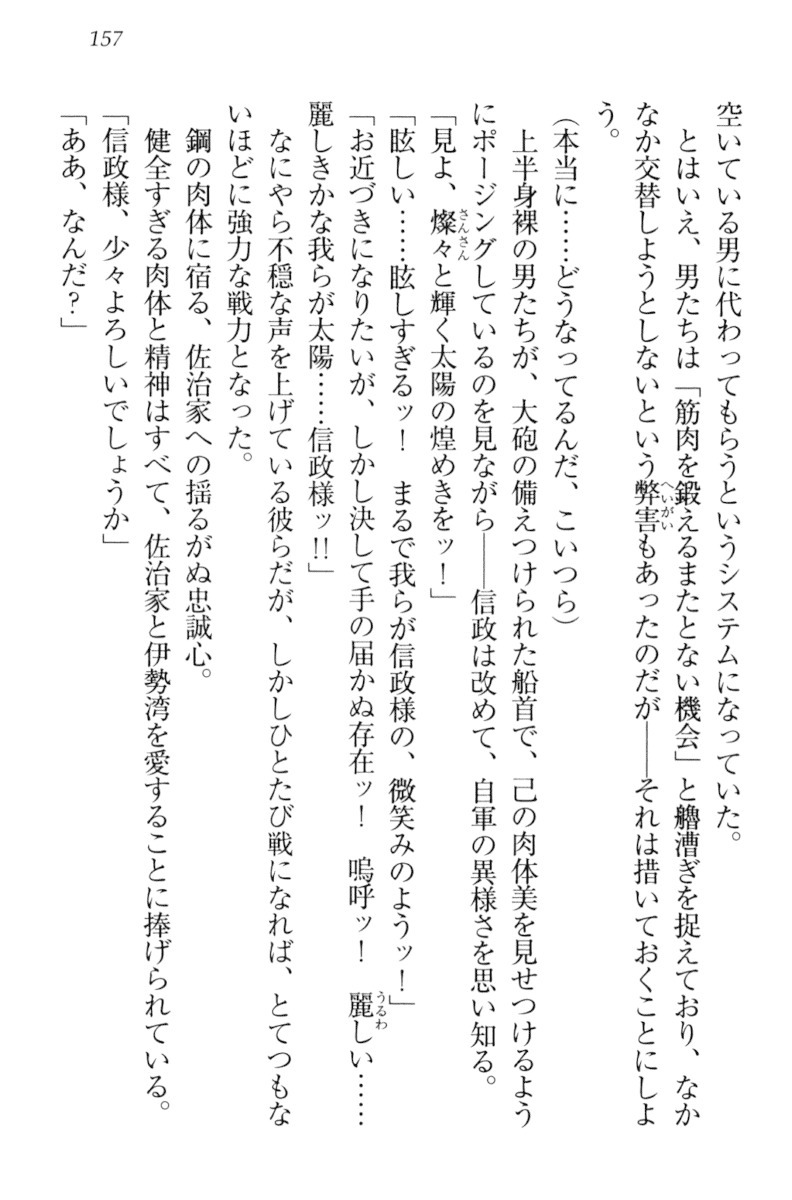 157
空いている男に代わってもらうというシステムになっていた。
　とはいえ、男たちは「筋肉を鍛えるまたとない機会」と艪漕ぎを捉えており、なか
なか交替しようとしないという弊害もあったのだが――それは措いておくことにしよ
う。
（本当に……どうなってるんだ、こいつら）
　上半身裸の男たちが、大砲の備えつけられた船首で、己の肉体美を見せつけるよう
にポージングしているのを見ながら――信政は改めて、自軍の異様さを思い知る。
「見よ、燦々と輝く太陽の煌めきをッ！」
「眩しい……眩しすぎるッ！　まるで我らが信政様の、微笑みのようッ！」
「お近づきになりたいが、しかし決して手の届かぬ存在ッ！　嗚呼ッ！　麗しい……
麗しきかな我らが太陽……信政様ッ!!」
　なにやら不穏な声を上げている彼らだが、しかしひとたび戦になれば、とてつもな
いほどに強力な戦力となった。
　鋼の肉体に宿る、佐治家への揺るがぬ忠誠心。
　健全すぎる肉体と精神はすべて、佐治家と伊勢湾を愛することに捧げられている。
「信政様、少々よろしいでしょうか」
「ああ、なんだ？」